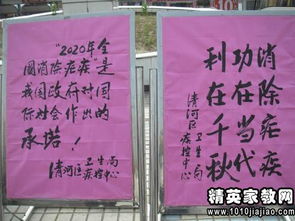 "2020年全
国消除疟疾"是
我国政府对国
际社会作出的
承诺!
清河区 卫生局
疾控中心
消除疟疾
功在当代
利在千秋
清河区 卫生局
疾控中心
精英家教网
www.1010jiajiao.com